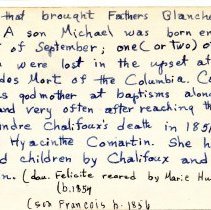 that brought Fathers Blanche
A son Michael was born en
of September; one (or two) of
were lost in the upset af
dos Mort of the Columbia. Co
s godmother at baptisms along
and very often after reaching th
ndre Chalifoux's death in 185
Hyacinthe Comartin. She h
d children by Chalifoux and
n. (dau. Felicite reared by Marie Hu
(b. 1854
(son Francois b. 1856